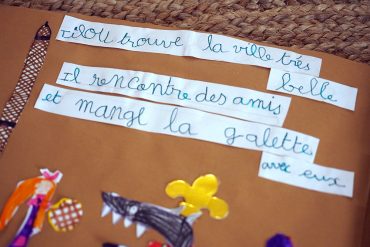 Lilou trouve la ville très
belle
Il rencontre des amis
et mange la galette
avec eux